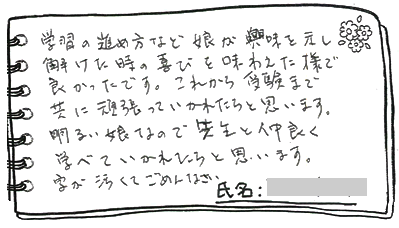 学習の進め方など娘が興味を示し
解けた時の喜びを味わえた様で
良かったです。これから受験まで
共に頑張っていかれたらと思います。
明るい娘なので先生と仲良く
学べていかれたらと思います。
字が汚くてごめんなさい
氏名: